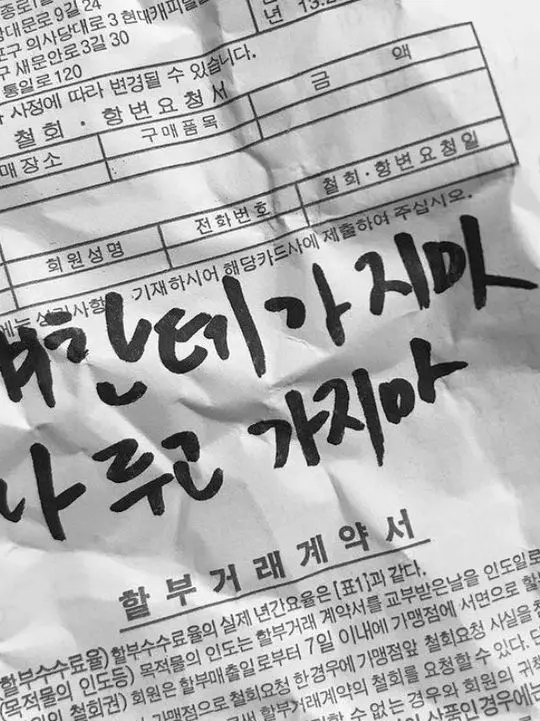 종로1
남대문로 9길 24
포구 의사당대로 3 현대캐피탈
구 새문안로3길 30
통일로 120
사정에 따라 변경될 수 있습니다.
년 13.2
철회 · 항변요청서
매장소 구매품목 금 액
회원성명 전화번호 철회·항변요청일
기재하시어 해당카드사에 제출하여 주십시오.
간데 가지마
나 루고 가지마
할부거래계약서
(할부수수료율) 할부수수료율의 실제 년간요율은 [표1]과 같다.
(목적물의 인도등) 목적물의 인도는 할부거래 계약서를 교부받은날을 인도일로
의 철회권) 회원은 할부매출일로부터 7일 이내에 가맹점에 서면으로 할
가맹점으로 철회요청 한경우에 가맹점앞 철회요청 사실을
할부거래계약의 철회를 요청할 수 있다.
할 수 없는 경우와 회원의 귀책